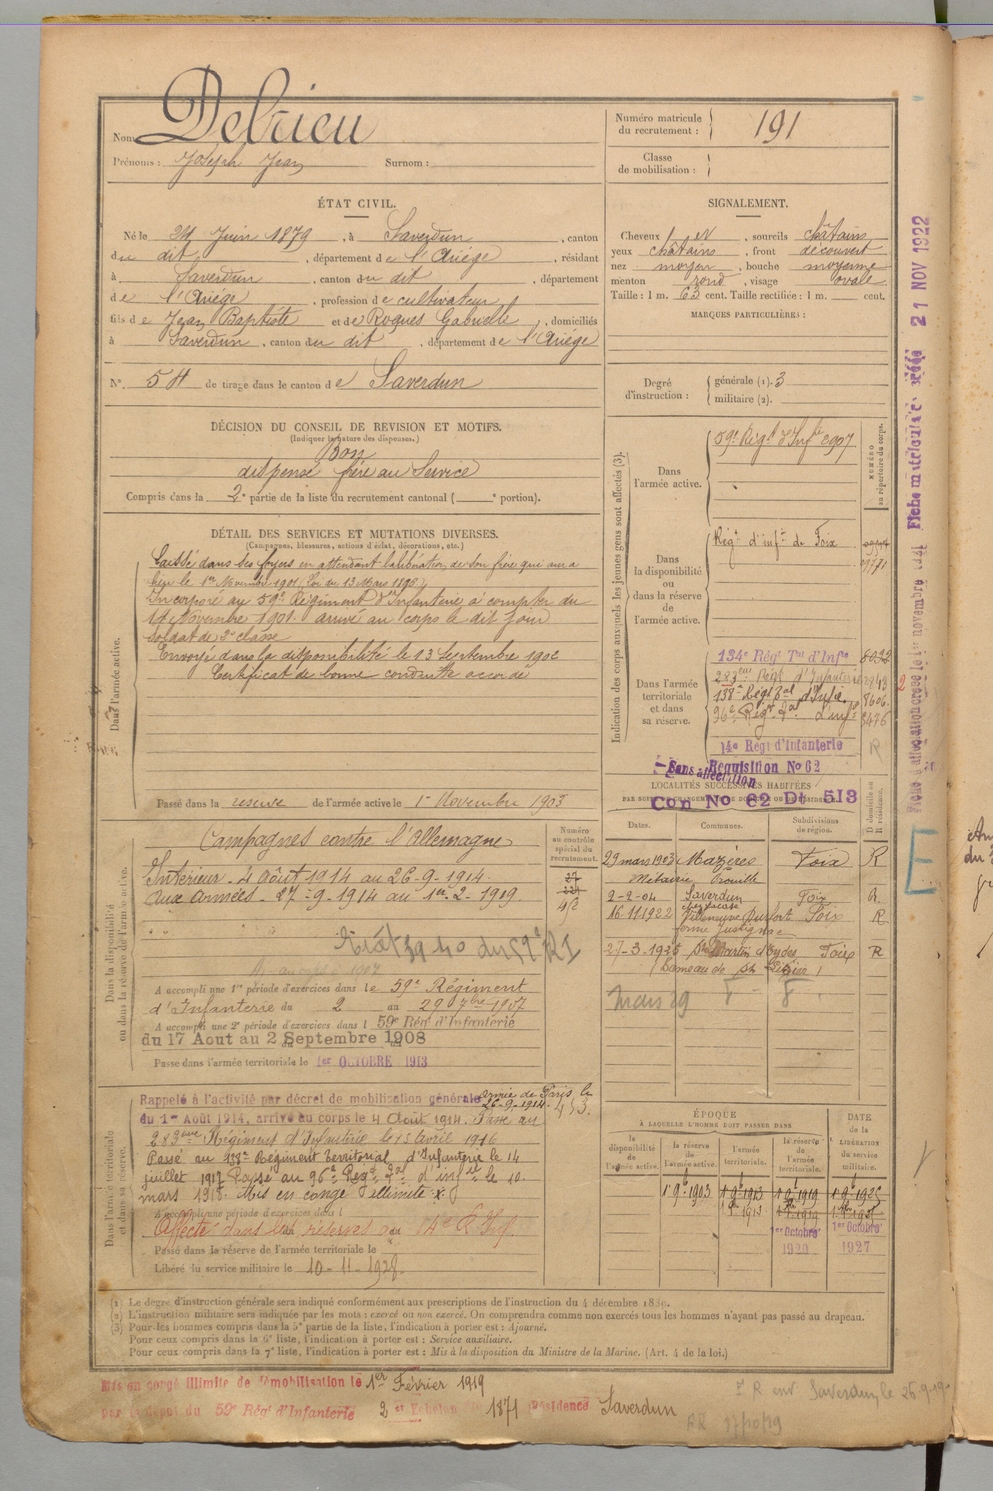 Nom Delrieu
Prénoms : Joseph Jean Surnom :
Numéro matricule du recrutement : 191
Classe de mobilisation :
ÉTAT CIVIL.
Né le 24 Juin 1879, à Saverdun, canton
du dit, département de l'Ariège, résidant
à Saverdun, canton du dit, département
de l'Ariège, profession de cultivateur
fils de Jean Baptiste et de Roques Gabrielle, domiciliés
à Saverdun, canton du dit, département de l'Ariège
N° 54 de tirage dans le canton de Saverdun
SIGNALEMENT.
Cheveux et, sourcils châtains
yeux châtains, front découvert
nez moyen, bouche moyenne
menton rond, visage ovale
Taille : 1 m. 63 cent. Taille rectifiée : 1 m. cent.
MARQUES PARTICULIÈRES :
Degré d'instruction : générale (1). 3
militaire (2).
DÉCISION DU CONSEIL DE REVISION ET MOTIFS.
(Indiquer la nature des dispenses.)
Bon
dispensé frère au Service
Compris dans la 2e partie de la liste du recrutement cantonal ( e portion).
DÉTAIL DES SERVICES ET MUTATIONS DIVERSES.
(Campagnes, blessures, actions d'éclat, décorations, etc.)
Dans l'armée active.
Laissé dans ses foyers en attendant la libération de son frère qui aura
lieu le 1er Novembre 1901 (loi du 13 Mars 1896)
Incorporé au 59e Régiment d'Infanterie à compter du
14 Novembre 1901 arrivé au corps le dit jour
soldat de 2e classe
Envoyé dans la disponibilité le 13 Septembre 1902
Certificat de bonne conduite accordé
Passé dans la réserve de l'armée active le 1er Novembre 1903
Indication des corps auxquels les jeunes gens sont affectés (3).
NUMÉRO au répertoire du corps.
Dans l'armée active.
59e Régt d'Infie 2907
Dans la disponibilité ou dans la réserve de l'armée active.
Régt d'infie de Foix
Dans l'armée territoriale et dans sa réserve.
134e Régt Tal d'Infie 8032
283eme Régt d'Infanterie
138e Régt Tal d'Infie 8606
96e Régt Tal d'infie 3476
14e Régt d'Infanterie R
Sans affectation Réquisition No 62
Con No 62 Dt 513
LOCALITÉS SUCCESSIVES HABITÉES
Dates. Communes. Subdivisions de région. D domicile ou R résidence.
29 mars 1903 Mazères Foix R
Métairie
2-2-04 Saverdun Foix R
16-11-1922 Villeneuve Durfort Foix R
ferme Justignac
27-3-1925 St Martin d'Oydes Foix R
(hameau de
mars 29
Dans la disponibilité ou dans la réserve de l'armée active.
Numéro au contrôle spécial du recrutement.
Campagnes contre l'Allemagne
Intérieur - 4 août 1914 au 26-9-1914
aux armées - 27-9-1914 au 1er-2-1919.
A accompli une 1re période d'exercices dans le 59e Régiment
d'Infanterie du 2 au 29 7bre 1907
A accompli une 2e période d'exercices dans l 59e Régt d'Infanterie
du 17 Aout au 2 Septembre 1908
Passé dans l'armée territoriale le 1er OCTOBRE 1913
Dans l'armée territoriale et dans sa réserve.
Rappelé à l'activité par décret de mobilisation générale armée de Paris le 26-9-1914.
du 1er Août 1914, arrivé au corps le 4 Août 1914. Passé au
283eme Régiment d'Infanterie le 15 avril 1916
Passé au 138e Régiment Territorial d'Infanterie le 14
juillet 1917 Passé au 96e Régt Tal d'infie le 10
mars 1918. Mis en congé illimité
A accompli une période d'exercices dans l
Affecté dans les réserves au 14e R. Inf.
Passé dans la réserve de l'armée territoriale le
Libéré du service militaire le 10-11-1928.
ÉPOQUE
À LAQUELLE L'HOMME DOIT PASSER DANS
la disponibilité de l'armée active. la réserve de l'armée active. l'armée territoriale. la réserve de l'armée territoriale. DATE de la LIBÉRATION du service militaire.
1er 9bre 1903 1er 9bre 1913 1er 9bre 1919 1er 9bre 1925
1er Octobre 1920 1er Octobre 1927
(1) Le degré d'instruction générale sera indiqué conformément aux prescriptions de l'instruction du 4 décembre 1889.
(2) L'instruction militaire sera indiquée par les mots : exercé ou non exercé. On comprendra comme non exercés tous les hommes n'ayant pas passé au drapeau.
(3) Pour les hommes compris dans la 5e partie de la liste, l'indication à porter est : Ajourné.
Pour ceux compris dans la 6e liste, l'indication à porter est : Service auxiliaire.
Pour ceux compris dans la 7e liste, l'indication à porter est : Mis à la disposition du Ministre de la Marine. (Art. 4 de la loi.)
Mis en congé illimité de démobilisation le 1er Février 1919
par le dépôt du 59e Régt d'Infanterie 2 Echelon 1871 Résidence Saverdun
21 NOV 1922